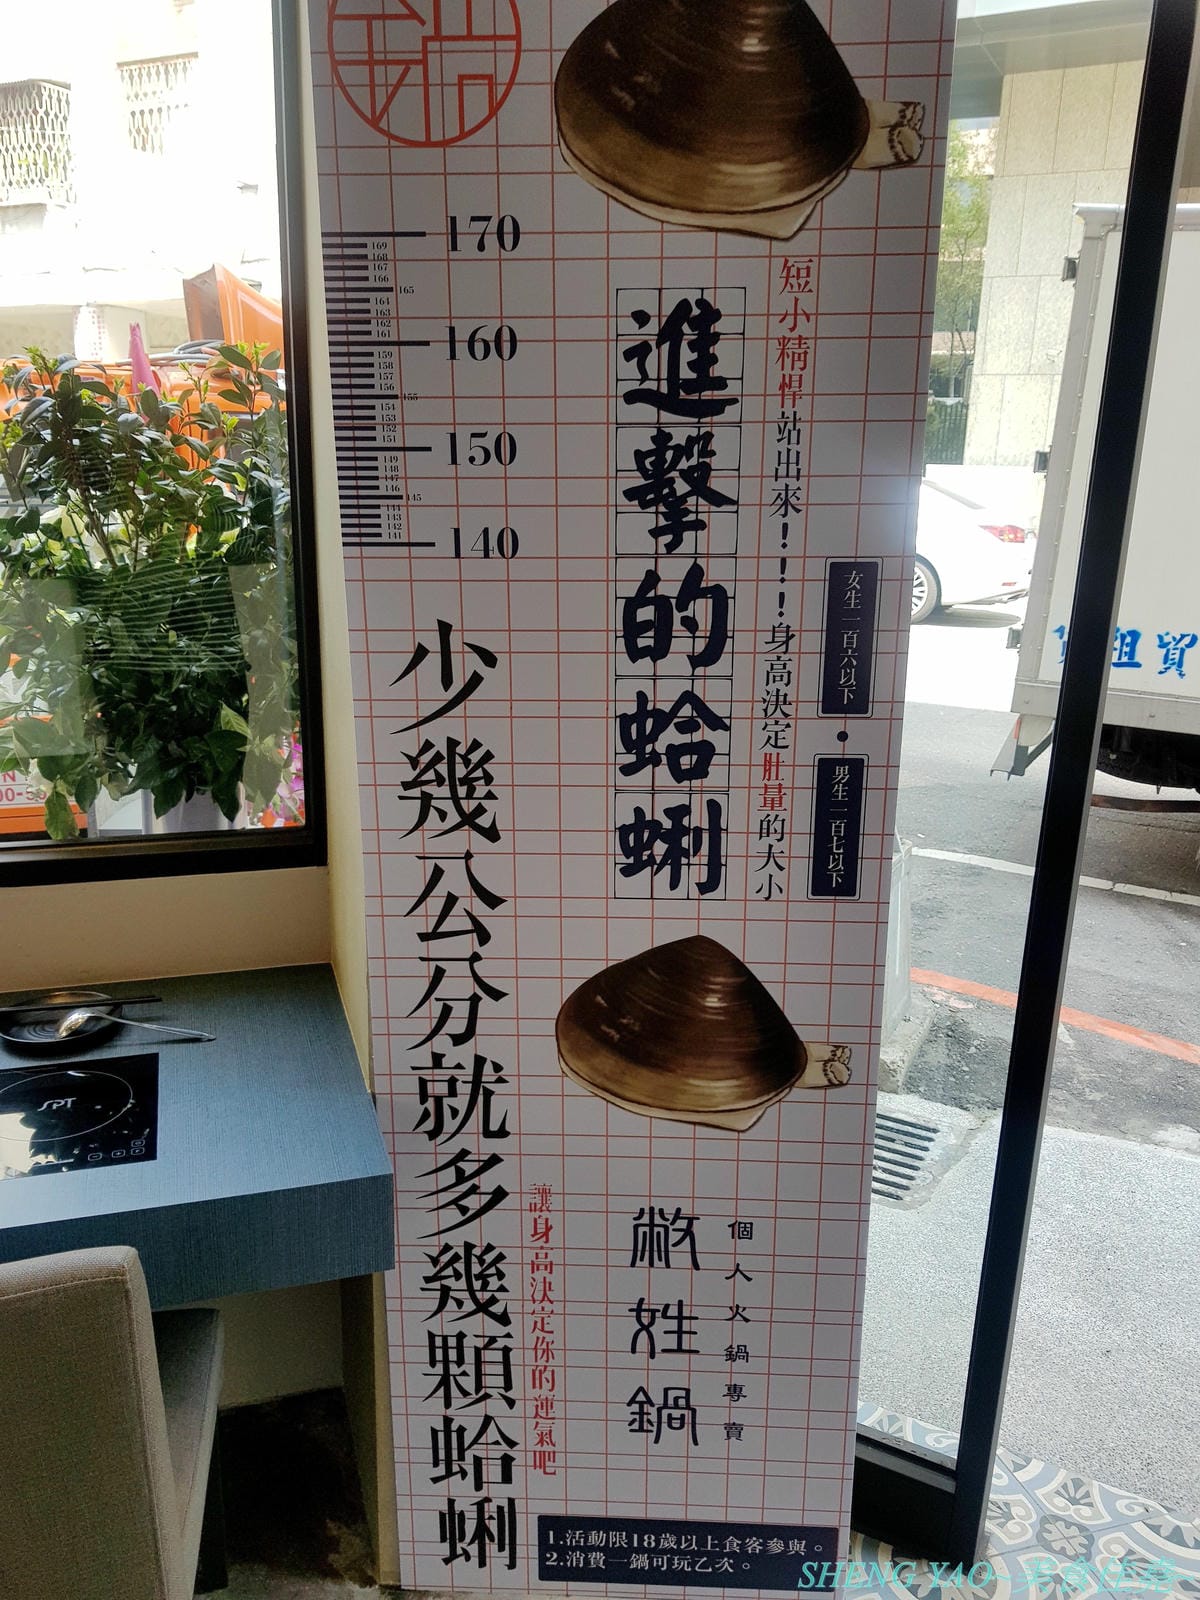 鍋
170
169
168
167
166
165
164
163
162
161
160
159
158
157
156
155
154
153
152
151
150
149
148
147
146
145
144
143
142
141
140
短小精悍站出來!!!身高決定肚量的大小
進擊的蛤蜊
女生一百六以下
•
男生一百七以下
少幾公分就多幾顆蛤蜊
讓身高決定你的運氣吧
個人火鍋專賣
敝姓鍋
1.活動限18歲以上食客參與。
2.消費一鍋可玩乙次。
SPT
租貿
SHENG YAO~美食佳餚~